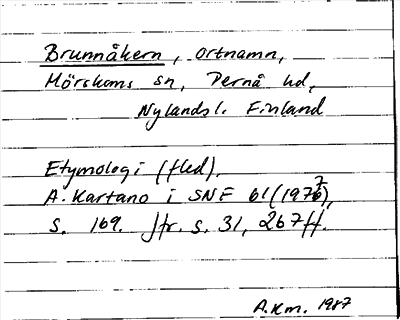 Brunnåkern, ortnamn,
Mörskoms sn, Pernå hd,
Nylands l. Finland
Etymologi (fled).
A. Kartano i SNF 61 (1977),
s. 169. Jfr. s. 31, 267 ff.
A.Km. 1987